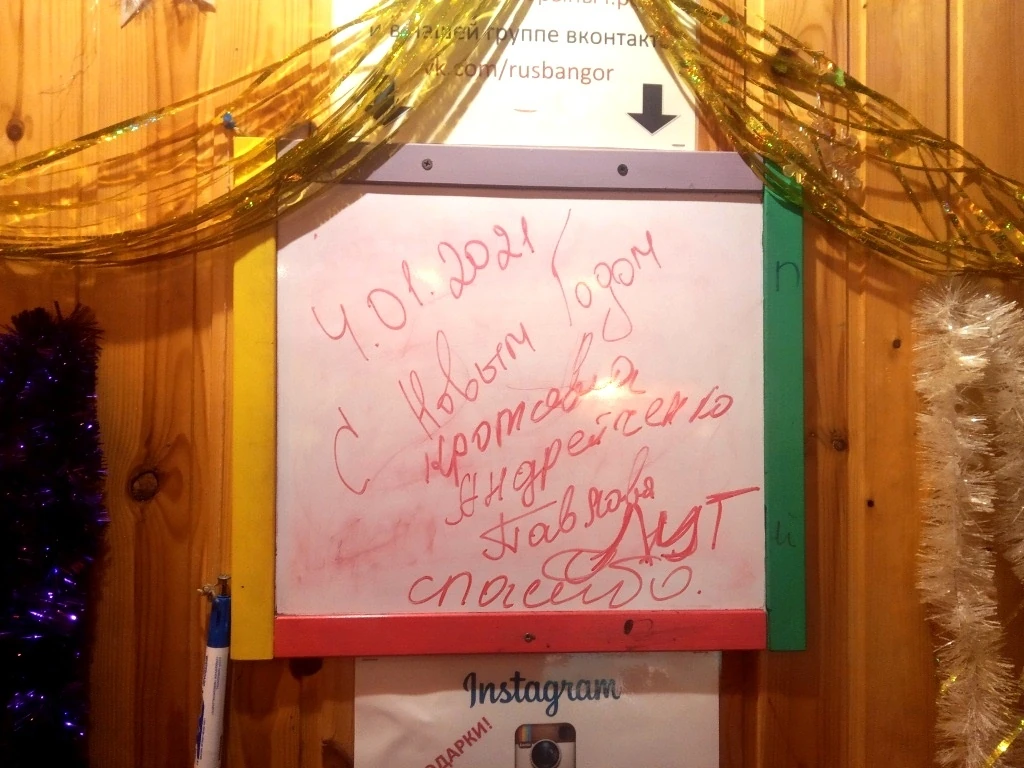 и в нашей группе вконтакте
vk.com/rusbangor
4.01.2021
С Новым Годом
Кротова
Андрейченко
Павлова
ЛУТ
спасибо.
п
й
Instagram
ПОДАРКИ!